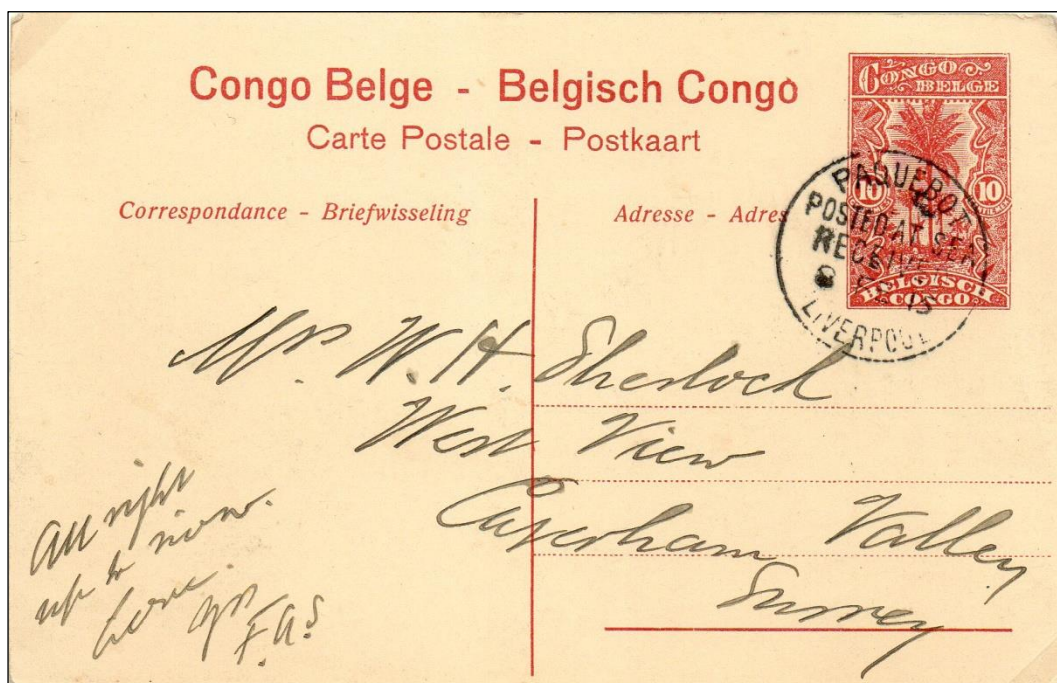 Congo Belge - Belgisch Congo
Carte Postale - Postkaart
Correspondance - Briefwisseling
Adresse - Adres
CONGO
BELGE
10 10
BELGISCH
CONGO
PAQUEBOT
POSTED AT SEA
RECEIVE
15
LIVERPOOL
Mrs W. H. Sherlock
West View
Caperham Valley
Surrey
All right
up to now.
Love.
F.A.S